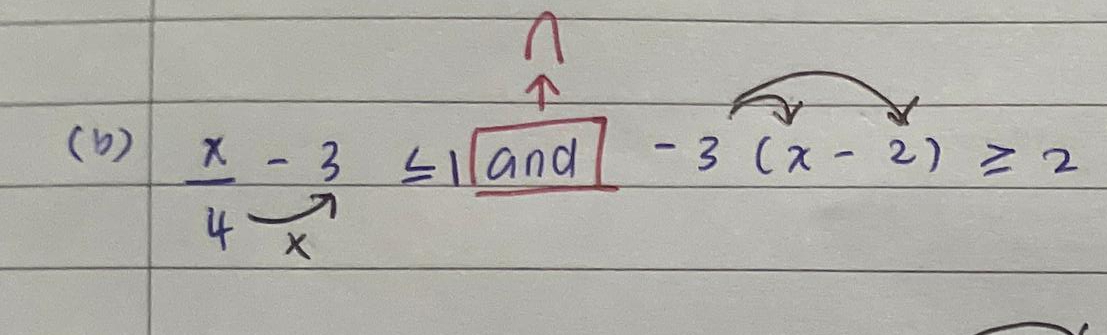 ∩
↑
(b) x/4 - 3 ≤ 1 and -3 (x - 2) ≥ 2
x